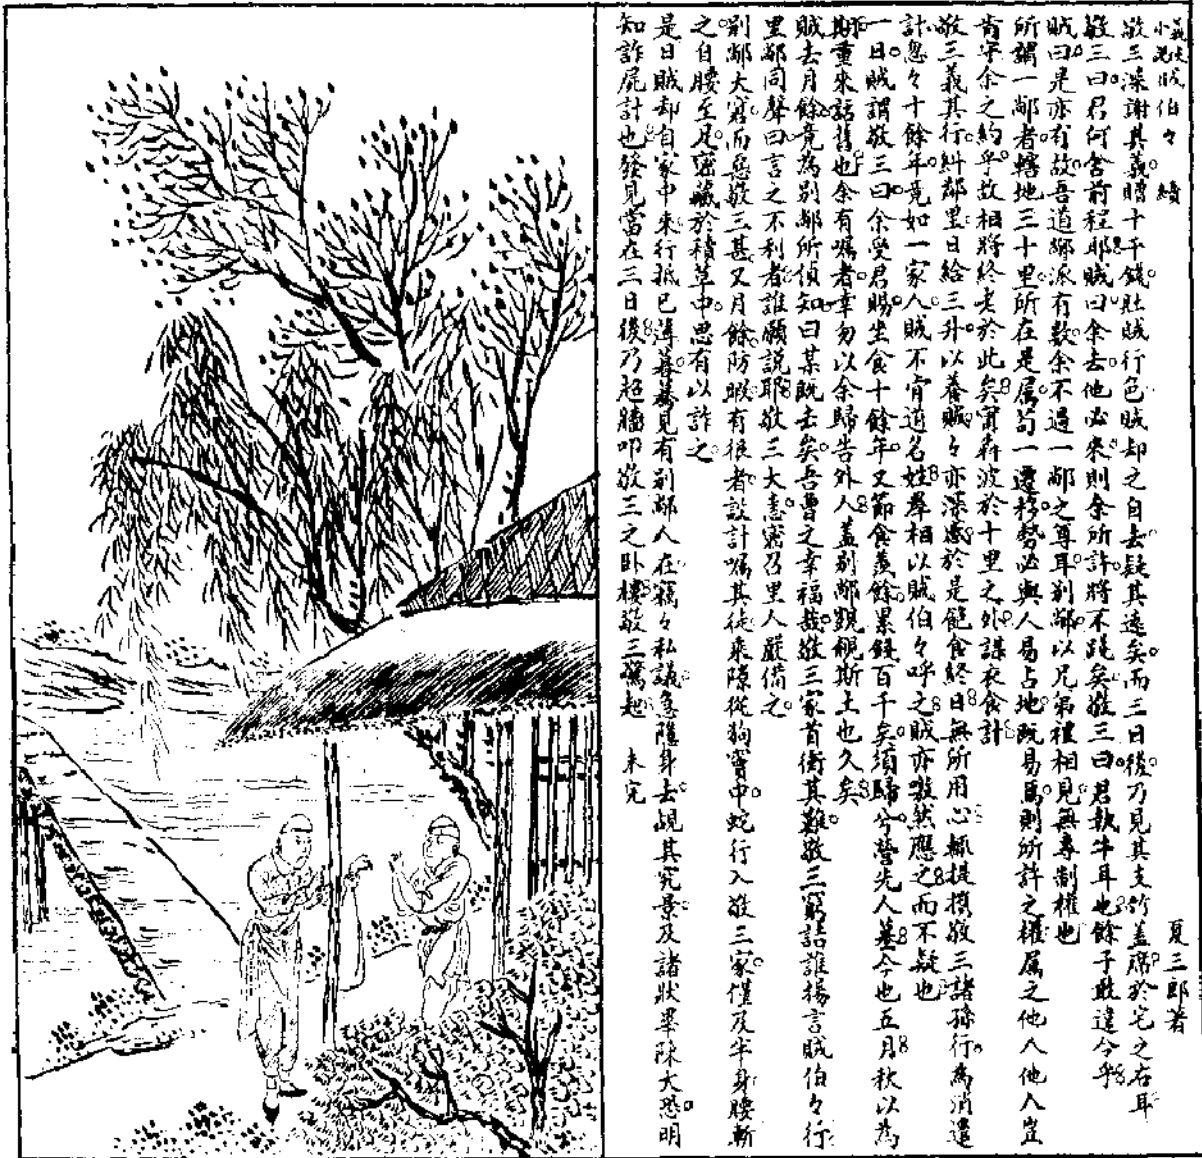 義俠小說 賊伯々 續 夏三郎著
敬三深謝其義贈十千錢壯賊行色賊却之自去疑其遠矣而三日後乃見其支竹蓋席於宅之右耳
敬三曰君何舍前程耶賊曰余去他必來則余所許將不踐矣敬三曰君執牛耳也餘子敢違令乎
賊曰是亦有故吾道鄰派有數余不過一鄰之尊耳別鄰以兄弟禮相見無專制權也
所謂一鄰者轄地三十里所在是屬苟一遷移勢必與人易占地既易焉則所許之權屬之他人他人豈
肯守余之約乎故相將終老於此矣實奔波於十里之外謀衣食計
敬三義其行糾鄰里日給三升以養賊々亦深感於是飽食終日無所用心輒提攜敬三諸孫行為消遣
計忽々十餘年竟如一家人賊不肯道名姓羣相以賊伯々呼之賊亦嗷然應之而不疑也
一日賊謂敬三曰余受君賜坐食十餘年又節食羨餘累錢百千矣須歸兮營先人墓今也五月秋以為
期重來話舊也余有囑者幸勿以余歸告外人蓋別鄰覬覦斯土也久矣
賊去月餘竟為別鄰所偵知曰某既去矣吾曹之幸福哉敬三家首衝其難敬三窮詰誰揚言賊伯々行
里鄰同聲曰言之不利者誰願說耶敬三大恚密召里人嚴備之
別鄰大窘而惡敬三甚又月餘防暇有狼者設計囑其徒乘隙從狗竇中蛇行入敬三家僅及半身腰斬
之自腰至足密藏於積草中思有以詐之
是日賊却自家中來行抵已薄暮驀見有別鄰人在竊々私議急隱身去覘其究景及諸狀畢陳大恐明
知詐屍計也發見當在三日後乃超牆叩敬三之臥樓敬三驚起 未完